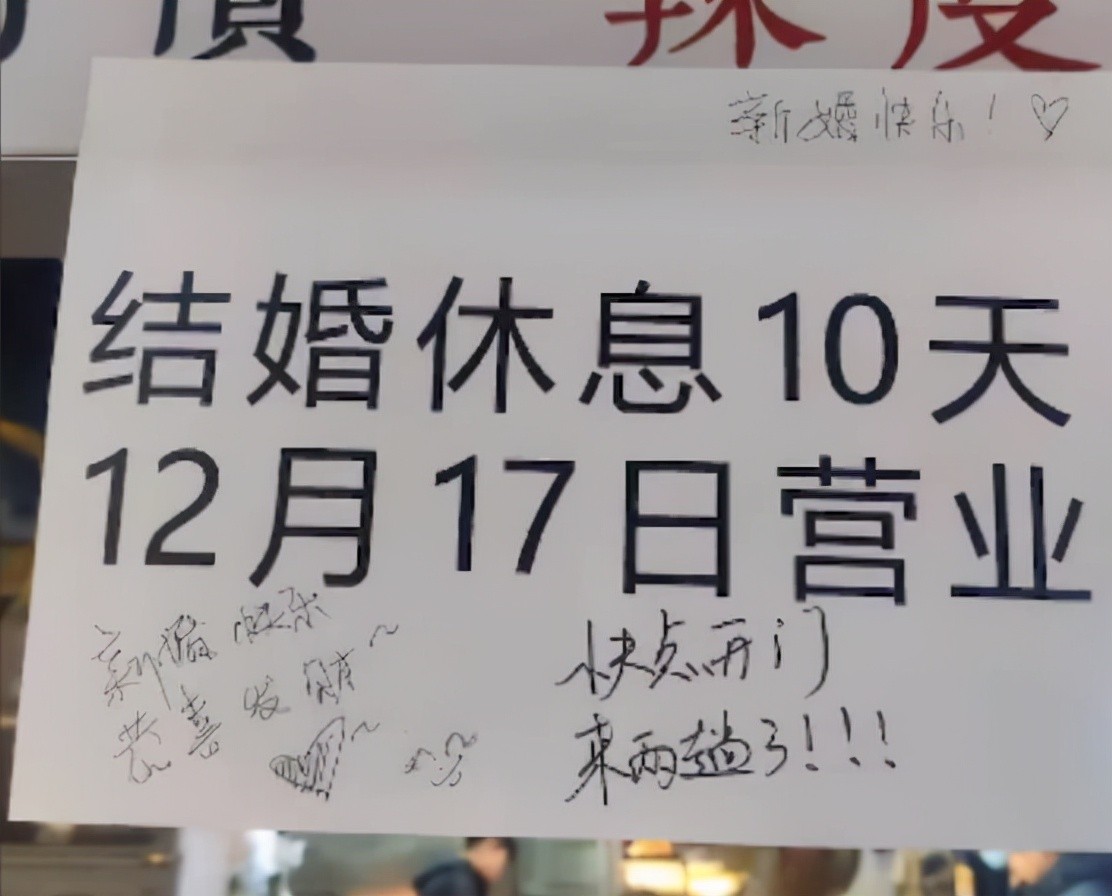 辣度
新婚快乐！♡
结婚休息10天
12月17日营业
新婚快乐~
恭喜发财~
快点开门
来两趟了！！！